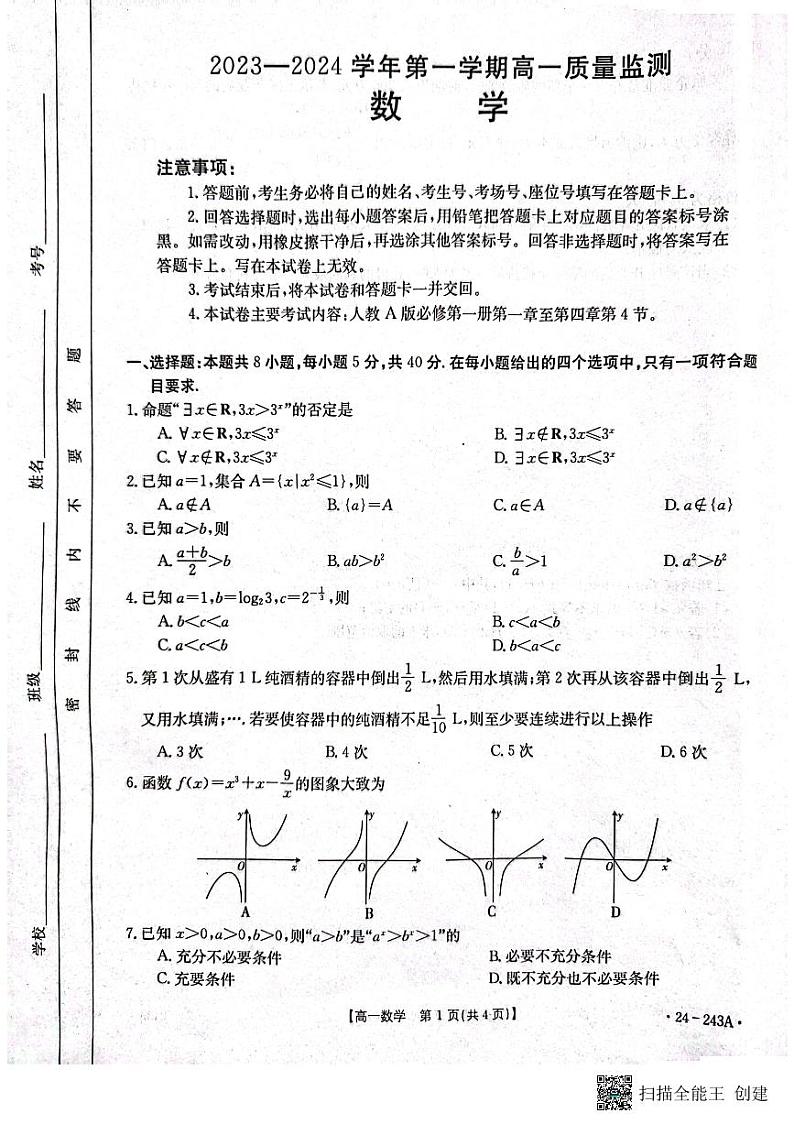 2023—2024 学年第一学期高一质量监测
数 学
注意事项:
1. 答题前,考生务必将自己的姓名、考生号、考场号、座位号填写在答题卡上。
2. 回答选择题时,选出每小题答案后,用铅笔把答题卡上对应题目的答案标号涂
黑。如需改动,用橡皮擦干净后,再选涂其他答案标号。回答非选择题时,将答案写在
答题卡上。写在本试卷上无效。
3. 考试结束后,将本试卷和答题卡一并交回。
4. 本试卷主要考试内容:人教 A 版必修第一册第一章至第四章第 4 节。
一、选择题:本题共 8 小题,每小题 5 分,共 40 分. 在每小题给出的四个选项中,只有一项符合题
目要求.
1. 命题“∃x∈R,3x>3ˣ”的否定是
A. ∀x∈R,3x≤3ˣ B. ∃x∉R,3x≤3ˣ
C. ∀x∉R,3x≤3ˣ D. ∃x∈R,3x≤3ˣ
2. 已知 a=1,集合 A={x|x²≤1},则
A. a∉A B. {a}=A C. a∈A D. a∉{a}
3. 已知 a>b,则
A. (a+b)/2>b B. ab>b² C. b/a>1 D. a²>b²
4. 已知 a=1,b=log₂3,c=2^(-1/3),则
A. b<c<a B. c<a<b
C. a<c<b D. b<a<c
5. 第 1 次从盛有 1 L 纯酒精的容器中倒出 1/2 L,然后用水填满;第 2 次再从该容器中倒出 1/2 L,
又用水填满;…. 若要使容器中的纯酒精不足 1/10 L,则至少要连续进行以上操作
A. 3 次 B. 4 次 C. 5 次 D. 6 次
6. 函数 f(x)=x³+x-9/x 的图象大致为
y y y y
O x O x O x O x
A B C D
7. 已知 x>0,a>0,b>0,则“a>b”是“aˣ>bˣ>1”的
A. 充分不必要条件 B. 必要不充分条件
C. 充要条件 D. 既不充分也不必要条件
【高一数学 第 1 页(共 4 页)】
·24-243A·
学校 班级 姓名 考号
密 封 线 内 不 要 答 题
扫描全能王 创建